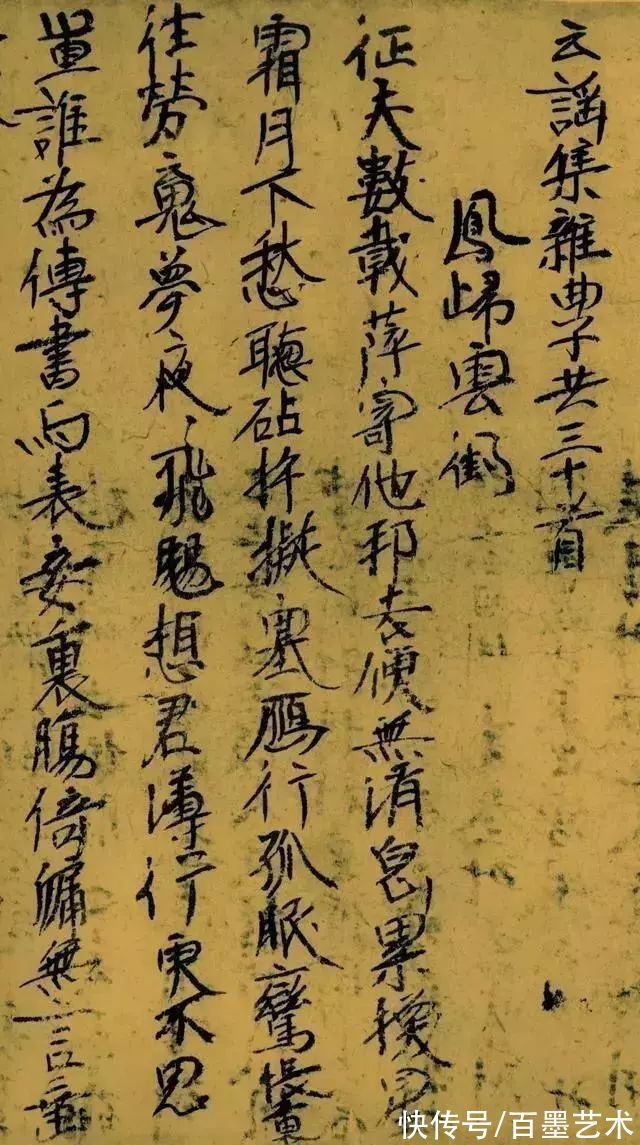 云謠集雜曲子共三十首
鳳歸雲
征夫數載萍寄他邦去便無消息累換
霜月下愁聽砧杵擬塞鴈行孤眠鸞帳裏
往勞魂夢夜、飛颺想君薄行更不思
量誰為傳書与表妾裏腸倚牖無言垂
快传号/百墨艺术